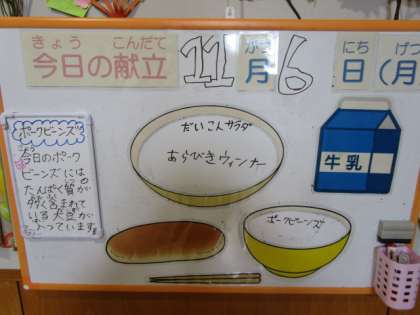 きょう こんだて
今日の献立
11
がつ
月
6
にち
日
げつ
(月
ポークビーンズ
今日のポーク
ビーンズには
たんぱく質が
多く含まれて
いる大豆が
入っています。
だいこんサラダ
あらびきウィンナー
牛乳
ポークビーンズ